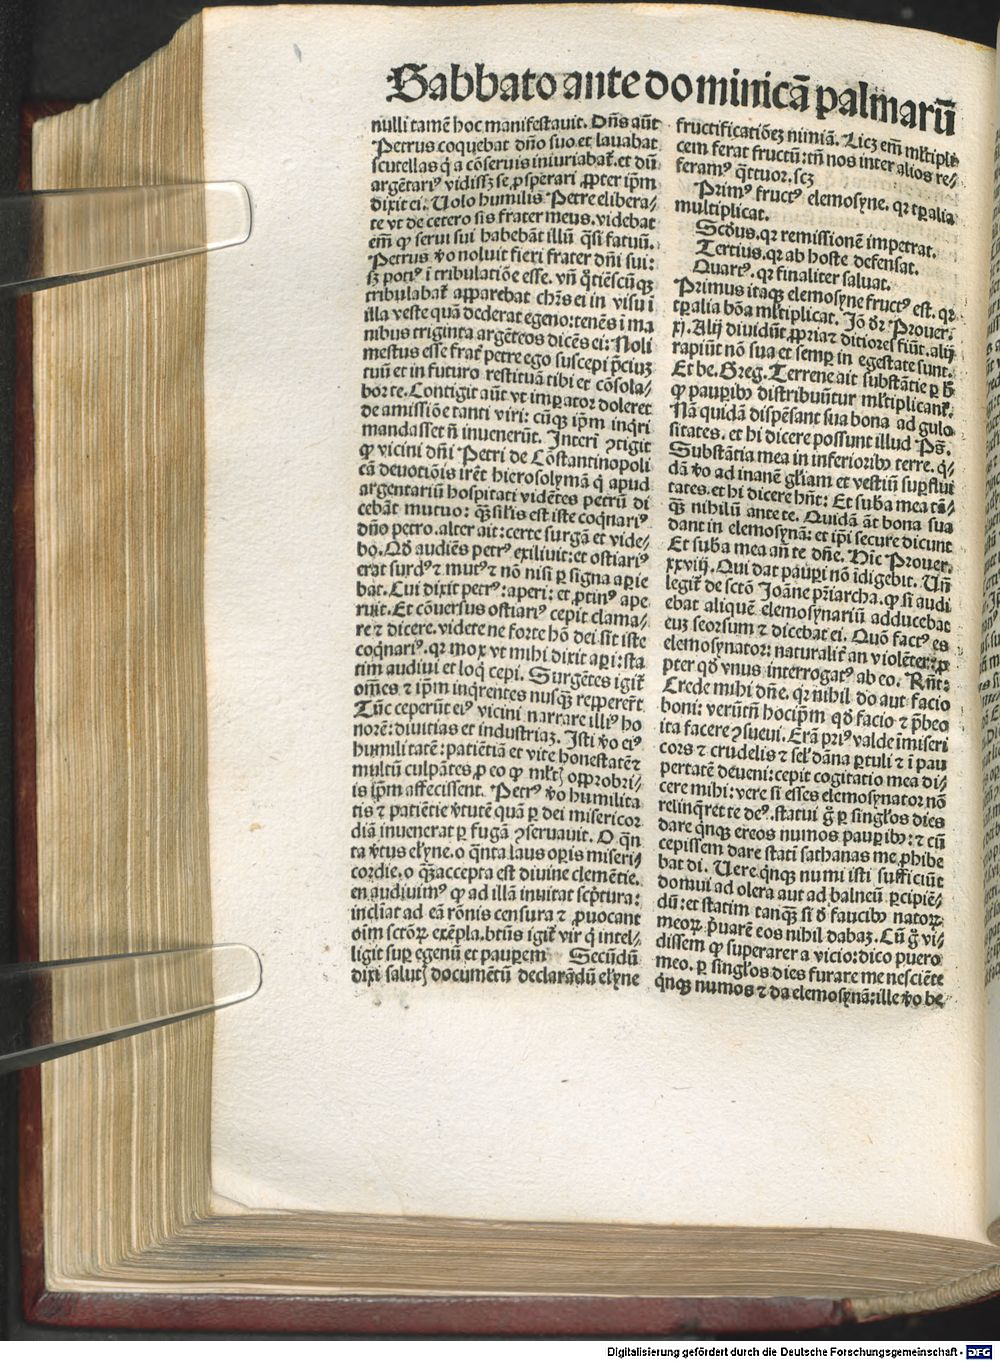 Sabbato ante dominicā palmarū
nulli tamē hoc manifestauit. Dn̄s aūt
Petrus coquebat dn̄o suo et lauabat
scutellas q̇ a cōseruis iniuriabat̄. et dū
argētariꝰ vidissꝫ se ꝓsperari ꝓpter ip̄m
dixit ei. Uolo humilis Petre elibera⸗
te vt de cetero sis frater meus. videbat
em̄ ꝙ serui sui habebāt illū q̄si fatuū.
Petrus v̄o noluit fieri frater dn̄i sui:
sꝫ potiꝰ ī tribulatiōe esse. vn̄ q̄tiēscūqꝫ
tribulabat̄ apparebat chr̄s ei in visu ī
illa veste quā dederat egeno: tenēs ī ma
nibus triginta argēteos dicēs ei: Noli
mestus esse frat̄ petre ego suscepi p̄ciuꝫ
tuū et in futuro restituā tibi et cōsola⸗
bor te. Contigit aūt vt imꝑator doleret
de amissiōe tanti viri: cūqꝫ ip̄m inq̇ri
mandasset n̄ inuenerūt. Interī ꝯtigit
ꝙ vicini dn̄i Petri de Cōstantinopoli
cā deuotiōis irēt hierosolymā q̇ apud
argentariū hospitati vidētes petrū di
cebāt mutuo: qꝫ sil̄is est iste coq̇nariꝰ
dn̄o petro. alter ait: certe surgā et vide⸗
bo. Qd̄ audiēs petrꝰ exiliuit: et ostiariꝰ
erat surdꝰ ⁊ mutꝰ ⁊ nō nisi ꝑ signa aꝑie
bat. Cui dixit petrꝰ: aperi: et ꝓtinꝰ ape
ruit. Et cōuersus ostiariꝰ cepit clama⸗
re ⁊ dicere. videte ne forte hō dei sit iste
coq̇nariꝰ. qꝛ mox vt mihi dixit aꝑi: sta
tim audiui et loq̇ cepi. Surgētes igit̄
om̄es ⁊ ip̄m inq̇rentes nusq̄ꝫ repperer̄t
Tūc ceperūt eiꝰ vicini narrare illiꝰ ho
norē: diuitias et industriaꝫ. Isti v̄o eiꝰ
humilitatē: patiētiā et vite honestatē ⁊
multū culpātes ꝓ eo ꝙ ml̄tꝭ opprobri⸗
is ip̄m affecissent. Petrꝰ v̄o humilita
tis ⁊ patiētie v̄tutē quā ꝑ dei misericor
diā inuenerat ꝑ fugā ꝯseruauit. O q̄n
ta v̄tus elyne. o q̄nta laus oꝑis miseri⸗
cordie. o q̄ꝫ accepra est diuine clemētie.
en audiuimꝰ ꝙ ad illā inuitat sc̄ptura:
incliat ad eā rōnis censura ⁊ ꝓuocant
oīm sctōꝝ exēpla. btūs igit̄ vir q̇ intel⸗
ligit suꝑ egenū et pauꝑem Secūdū
dixi salutꝭ documētū declarādū elyne
fructificatiōeꝫ nimiā. Licꝫ em̄ ml̄tipli
cem ferat fructū: tn̄ nos inter alios re⸗
feramꝰ q̄ttuor. scꝫ
Primꝰ fructꝰ elemosyne. qꝛ tꝑalia
multiplicat.
Scd̄us. qꝛ remissionē impetrat.
Tertius. qꝛ ab hoste defensat.
Quartꝰ. qꝛ finaliter saluat.
Primus itaqꝫ elemosyne fructꝰ est. qꝛ
tꝑalia bōa ml̄tiplicat. Iō dr̄ Prouer.
xj. Alij diuidūt ꝓpria ⁊ ditiores fiūt. alij
rapiūt nō sua et semꝑ in egestate sunt.
Et be. Greg. Terrene ait substātie ꝑ h̄
ꝙ pauꝑibꝰ distribuūtur ml̄tiplicant̄.
Nā quidā dispēsant sua bona ad gulo
sitates. et hi dicere possunt illud Ps̄.
Substātia mea in inferioribꝰ terre. q̇⸗
dā v̄o ad inanē gl̄iam et vestiū suꝑflui
tates. et hi dicere hn̄t: Et sub̄a mea tā⸗
q̄ꝫ nihilū ante te. Quidā āt bona sua
dant in elemosynā: et ip̄i secure dicunt
Et sub̄a mea an̄ te dn̄e. Hic Prouer.
xxviij. Qui dat pauꝑi nō īdigebit. Un̄
legit̄ de sctō Joāne pr̄iarcha. ꝙ si audi
ebat aliquē elemosynariū adducebat
euꝫ seorsum ⁊ dicebat ei. Quō factꝰ es
elemosynator: naturalit̄ an violēter: ꝓ
pter qd̄ vnus interrogatꝰ ab eo. Rn̄t:
Crede mihi dn̄e. qꝛ nihil do aut facio
boni: verūtn̄ hoc ip̄m qd̄ facio ⁊ p̄beo
ita facere ꝯsueui. Erā priꝰ valde īmiseri
cors ⁊ crudelis ⁊ sel̄ dāna ꝑtuli ⁊ ī pau
pertatē deueni: cepit cogitatio mea di⸗
cere mihi: vere si esses elemosynator nō
relinq̄ret te deꝰ. statui g̊ ꝑ singl̄os dies
dare q̇nqꝫ ereos numos pauꝑibꝰ: ⁊ cū
cepissem dare stati sathanas me ꝓhibe
bat di. Uere q̇nqꝫ numi isti sufficiūt
domui ad olera aut ad balneū ꝑcipiē⸗
dū: et statim tanq̄ꝫ si d̄ faucibꝰ natoꝝ
meoꝝ p̄uarē eos nihil dabaꝫ. Cū g̊ vi⸗
dissem ꝙ superarer a vicio: dico puero
meo. ꝑ singl̄os dies furare me nesciēte
q̇nqꝫ numos ⁊ da elemosynā: ille v̄o be
Digitalisierung gefördert durch die Deutsche Forschungsgemeinschaft - DFG